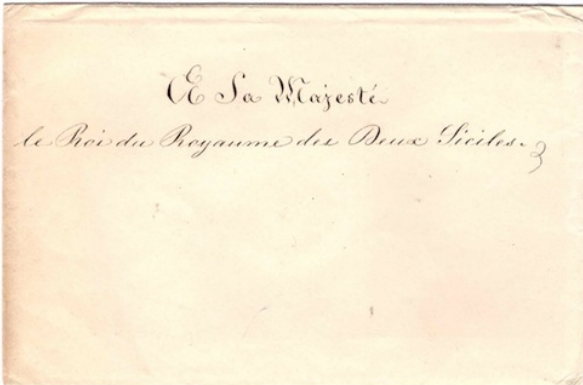 A Sa Majesté
le Roi du Royaume des Deux Siciles.